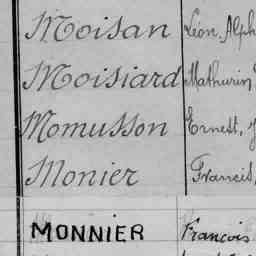 Moisan Léon, Alph
Moisiard Mathurin
Momusson Ernest, J
Monier Francis,
MONNIER François